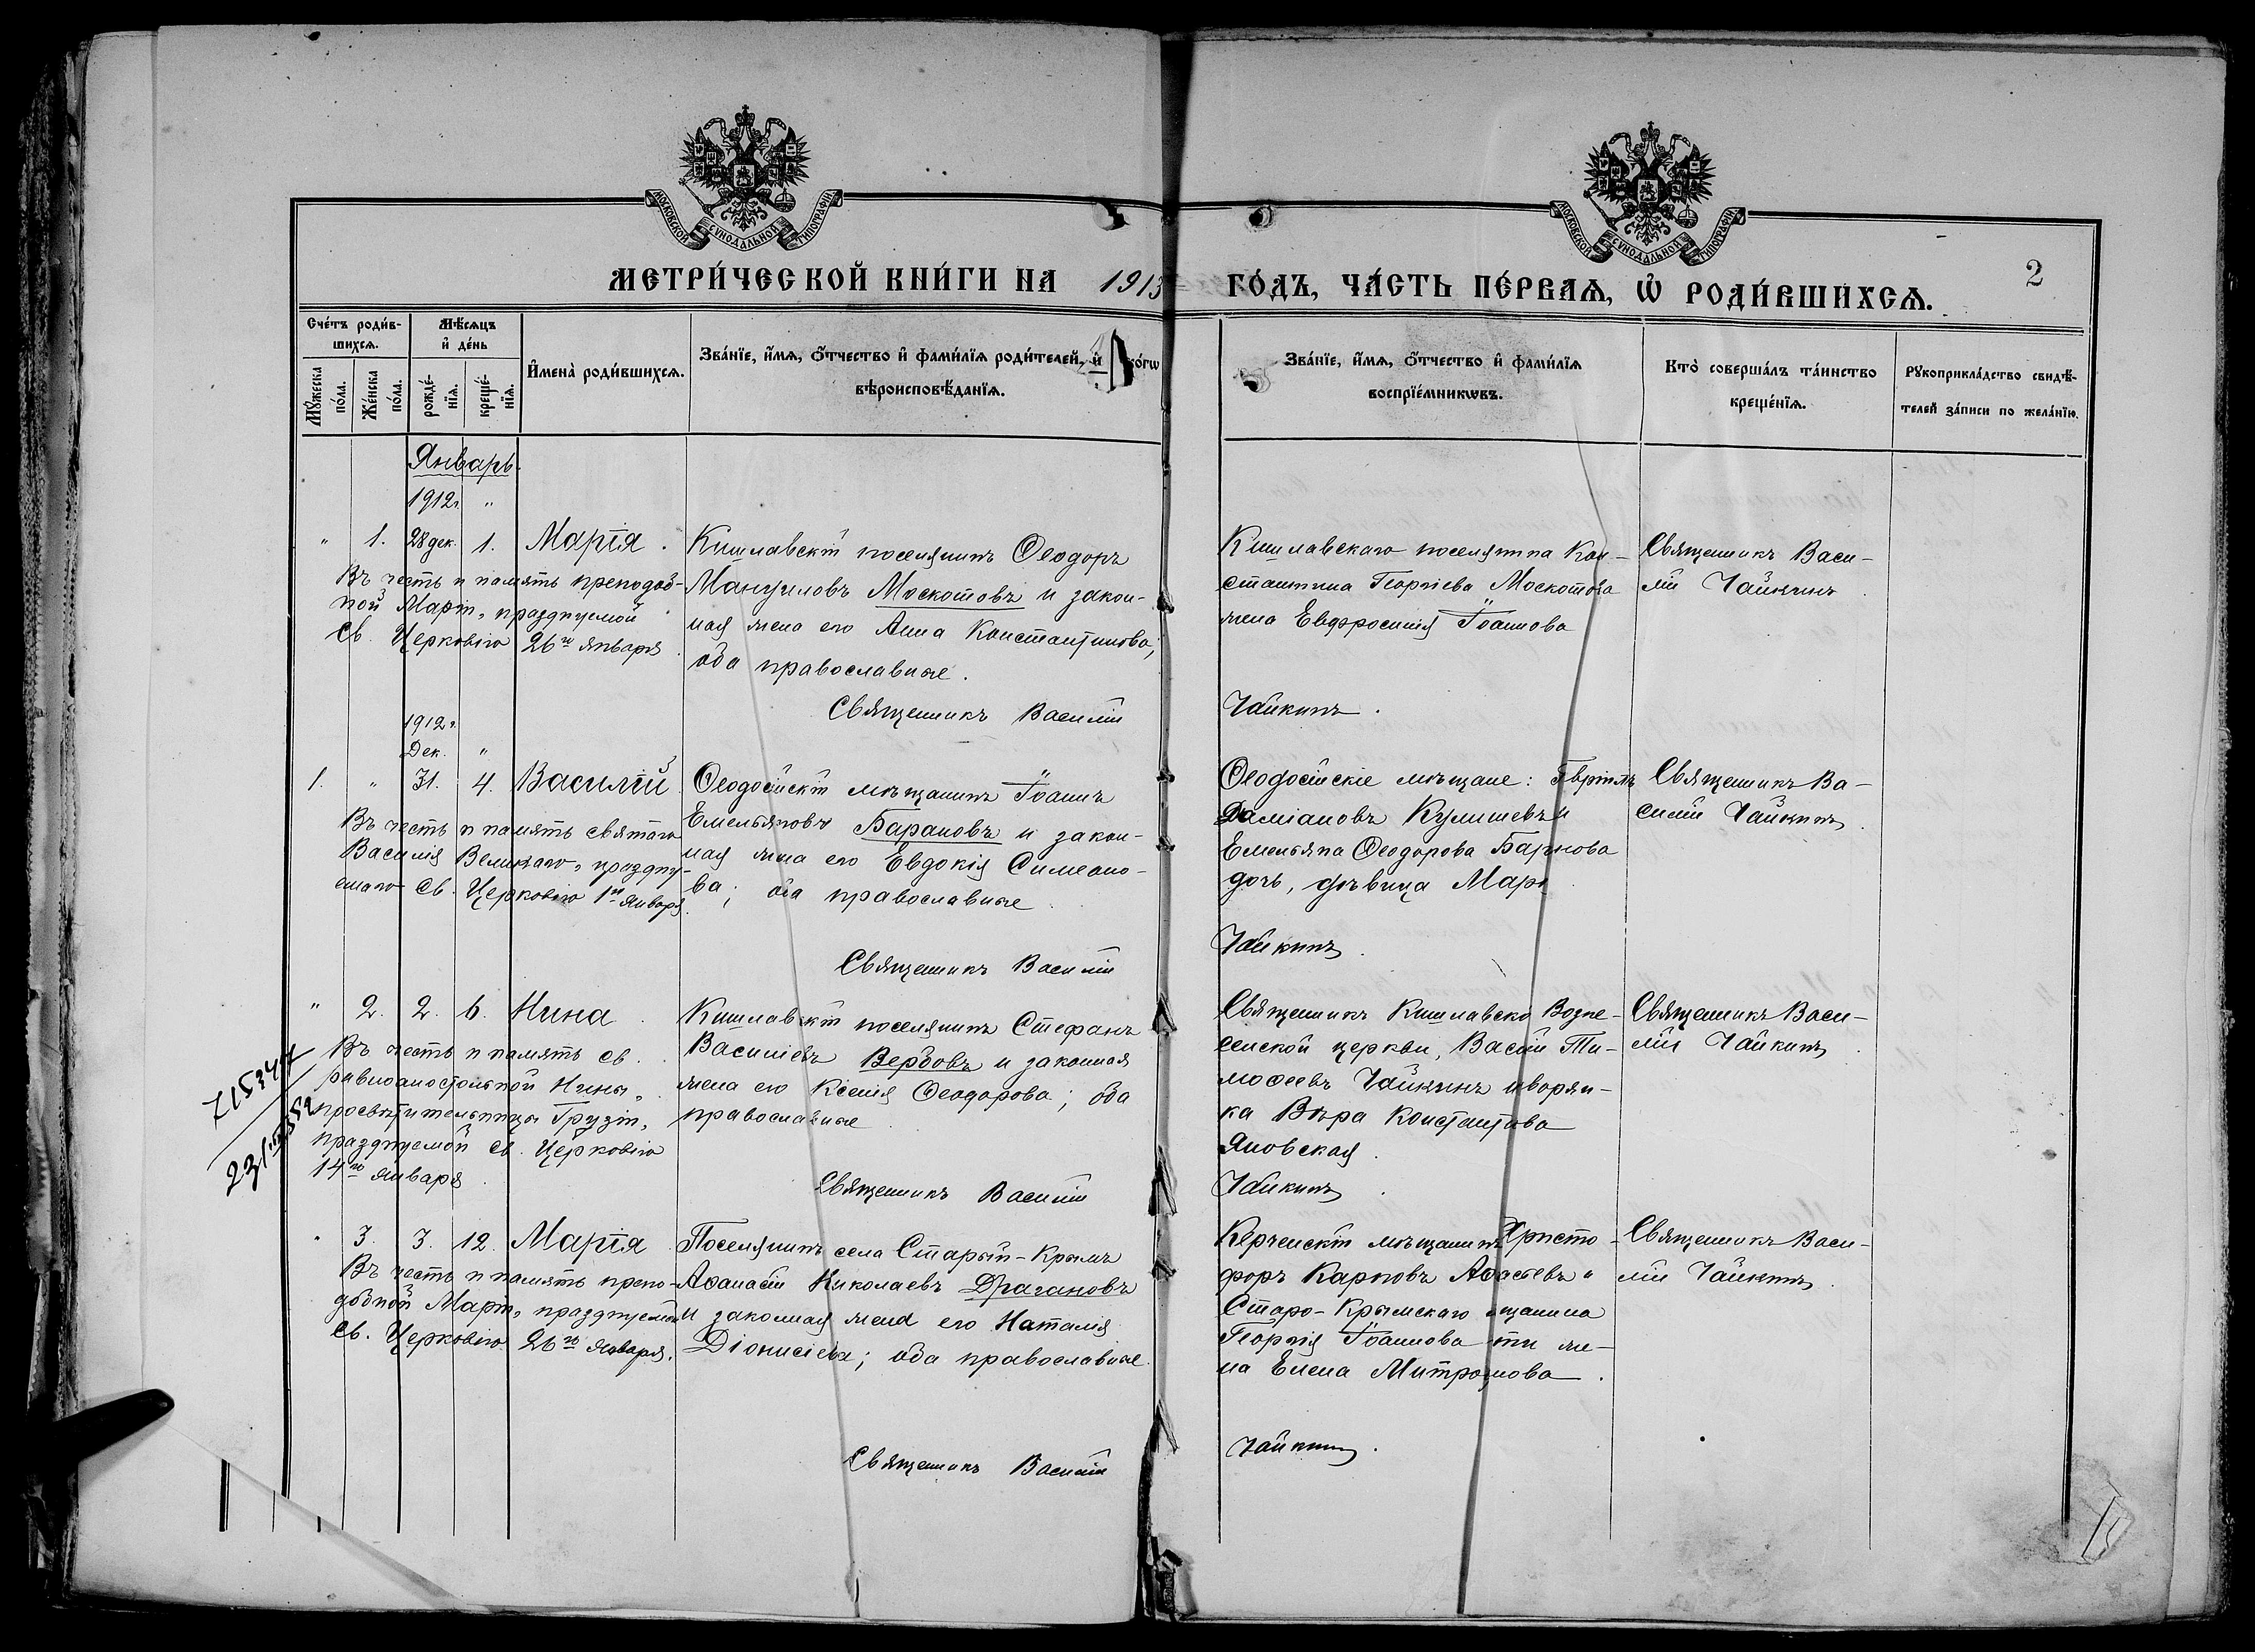 МОСКОВСКОЙ СѴНОДАЛЬНОЙ ТИПОГРАФІИ
МОСКОВСКОЙ СѴНОДАЛЬНОЙ ТИПОГРАФІИ
МЕТРИ́ЧЕСКОЙ КНИ́ГИ НА 1913 ГО́ДЪ, ЧА́СТЬ ПЕ́РВАѦ, Ѽ РОДИ́ВШИХСѦ.
2
Сче́тъ роди́в-
шихсѧ.
Мꙋ́жеска по́ла.
Же́нска по́ла.
Мѣ́сѧцъ
и҆ де́нь
рожде́-
нїѧ.
креще́-
нїѧ.
И҆мена̀ роди́вшихсѧ.
Зва́нїе, и҆́мѧ, ѻ҆́тчество и҆ фами́лїѧ роди́телей, и҆ ко́гѡ
вѣроисповѣ́данїѧ.
Зва́нїе, и҆́мѧ, ѻ҆́тчество и҆ фами́лїѧ
воспрїе́мникѡвъ.
Кто̀ соверша́лъ та́инство
креще́нїѧ.
Рꙋкоприкла́дство свидѣ́-
телей за́писи по жела́нїю.
Январь.
1912г. "
" 1. 28 дек. 1. Марія.
Въ честь и память преподоб-
ной Маріи, празднуемой
Св. Церковію 26го января.
Кишлавскій поселянинъ Ѳеодоръ
Мануиловъ Москотовъ и закон-
ная жена его Анна Константинова;
оба православные.
Священникъ Василій Чайкинъ.
Кишлавскаго поселянина Кон-
стантина Георгіева Москотова
жена Евфросинія Іоаннова
Священникъ Васи-
лій Чайкинъ
1912г.
Дек. "
1. " 31. 4. Василій
Въ честь и память святого
Василія Великаго, праздну-
емаго Св. Церковію 1го января.
Ѳеодосійскій мѣщанинъ Іоаннъ
Емельяновъ Барановъ и закон-
ная жена его Евдокія Симеоно-
ва; оба православные
Священникъ Василій Чайкинъ.
Ѳеодосійскіе мѣщане:
Даміановъ Кулишевъ и
Емельяна Ѳеодорова
дочь, дѣвица
Священникъ Ва-
силій Чайкинъ
" 2. 2. 6. Нина
Въ честь и память св.
равноапостольной Нины,
просвѣтительницы Грузіи,
празднуемой св. Церковію
14го января.
Кишлавскій поселянинъ Стефанъ
Василіевъ Вербовъ и законная
жена его Ксенія Ѳеодорова; оба
православные
Священникъ Василій Чайкинъ.
Священникъ Возне-
сенской церкви, Ти-
моѳеевъ Чайкинъ
ка Вѣра
Яновская.
Священникъ Васи-
лій Чайкинъ
" 3. 3. 12. Марія
Въ честь и память препо-
добной Маріи, празднуемой
Св. Церковію 26го января.
Поселянинъ села Старый-Крымъ
Аѳанасій Николаевъ Драгановъ
и законная жена его Наталія
Діонисіева; оба православные.
Священникъ Василій Чайкинъ.
Керченскій мѣщанинъ Христо-
форъ Карповъ и
Старо-Крымскаго
Георгія Іоаннова же-
на Елена
Священникъ Васи-
лій Чайкинъ.